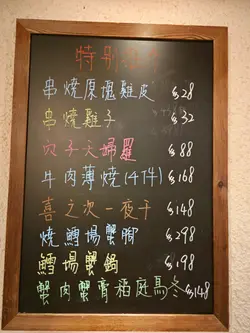 特別
串燒原塊雞皮 $28
串燒雞子 $32
穴子天婦羅 $88
牛肉薄燒(4件) $168
喜之次一夜干 $148
燒鱈場蟹腳 $298
鱈場蟹鍋 $198
蟹肉蟹膏稻庭烏冬 $148